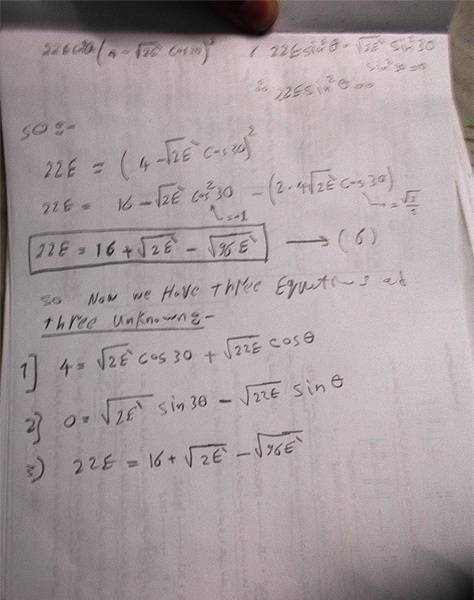 22E cos²θ (4 - √2E` cos30)² & 22E sin²θ = √2E` sin²30
sin²30 = 0
∴ 22E sin²θ = 0
SO :-
22E = (4 - √2E` cos30)²
22E = 16 - √2E` cos²30 - (2·4√2E` cos30)
22E = 16 + √2E` - √96E` → (6)
so Now we Have three Equations at
three Unknowns-
1] 4 = √2E` cos30 + √22E cosθ
2] 0 = √2E` sin30 - √22E sinθ
3) 22E = 16 + √2E` - √96E`